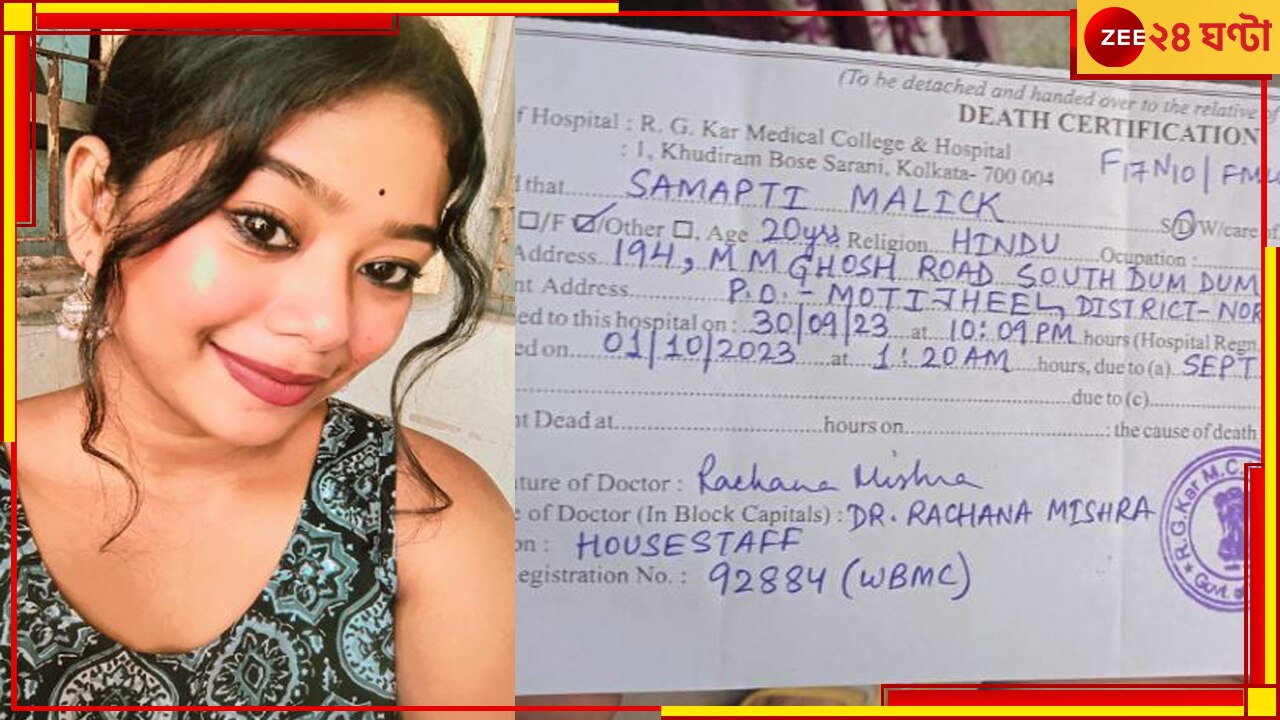 ZEE ২৪ ঘণ্টা
(To be detached and handed over to the relative of
DEATH CERTIFICATION
f Hospital : R. G. Kar Medical College & Hospital
: 1, Khudiram Bose Sarani, Kolkata- 700 004
F17N10/FM
that SAMAPTI MALICK S/D/W/care of
/F /Other , Age 20yrs Religion HINDU Ocupation :
Address 194, M M GHOSH ROAD SOUTH DUM DUM
nt Address P.O.- MOTIJHEEL, DISTRICT- NOR
ed to this hospital on : 30/09/23 at 10:09 PM hours (Hospital Regn.
ed on 01/10/2023 at 1:20 AM hours, due to (a) SEPT
due to (c)
nt Dead at hours on : the cause of death
ture of Doctor : Rachana Mishra
e of Doctor (In Block Capitals) : DR. RACHANA MISHRA
on : HOUSESTAFF
egistration No. : 92884 (WBMC)
R.G. Kar M.C.
Govt. of